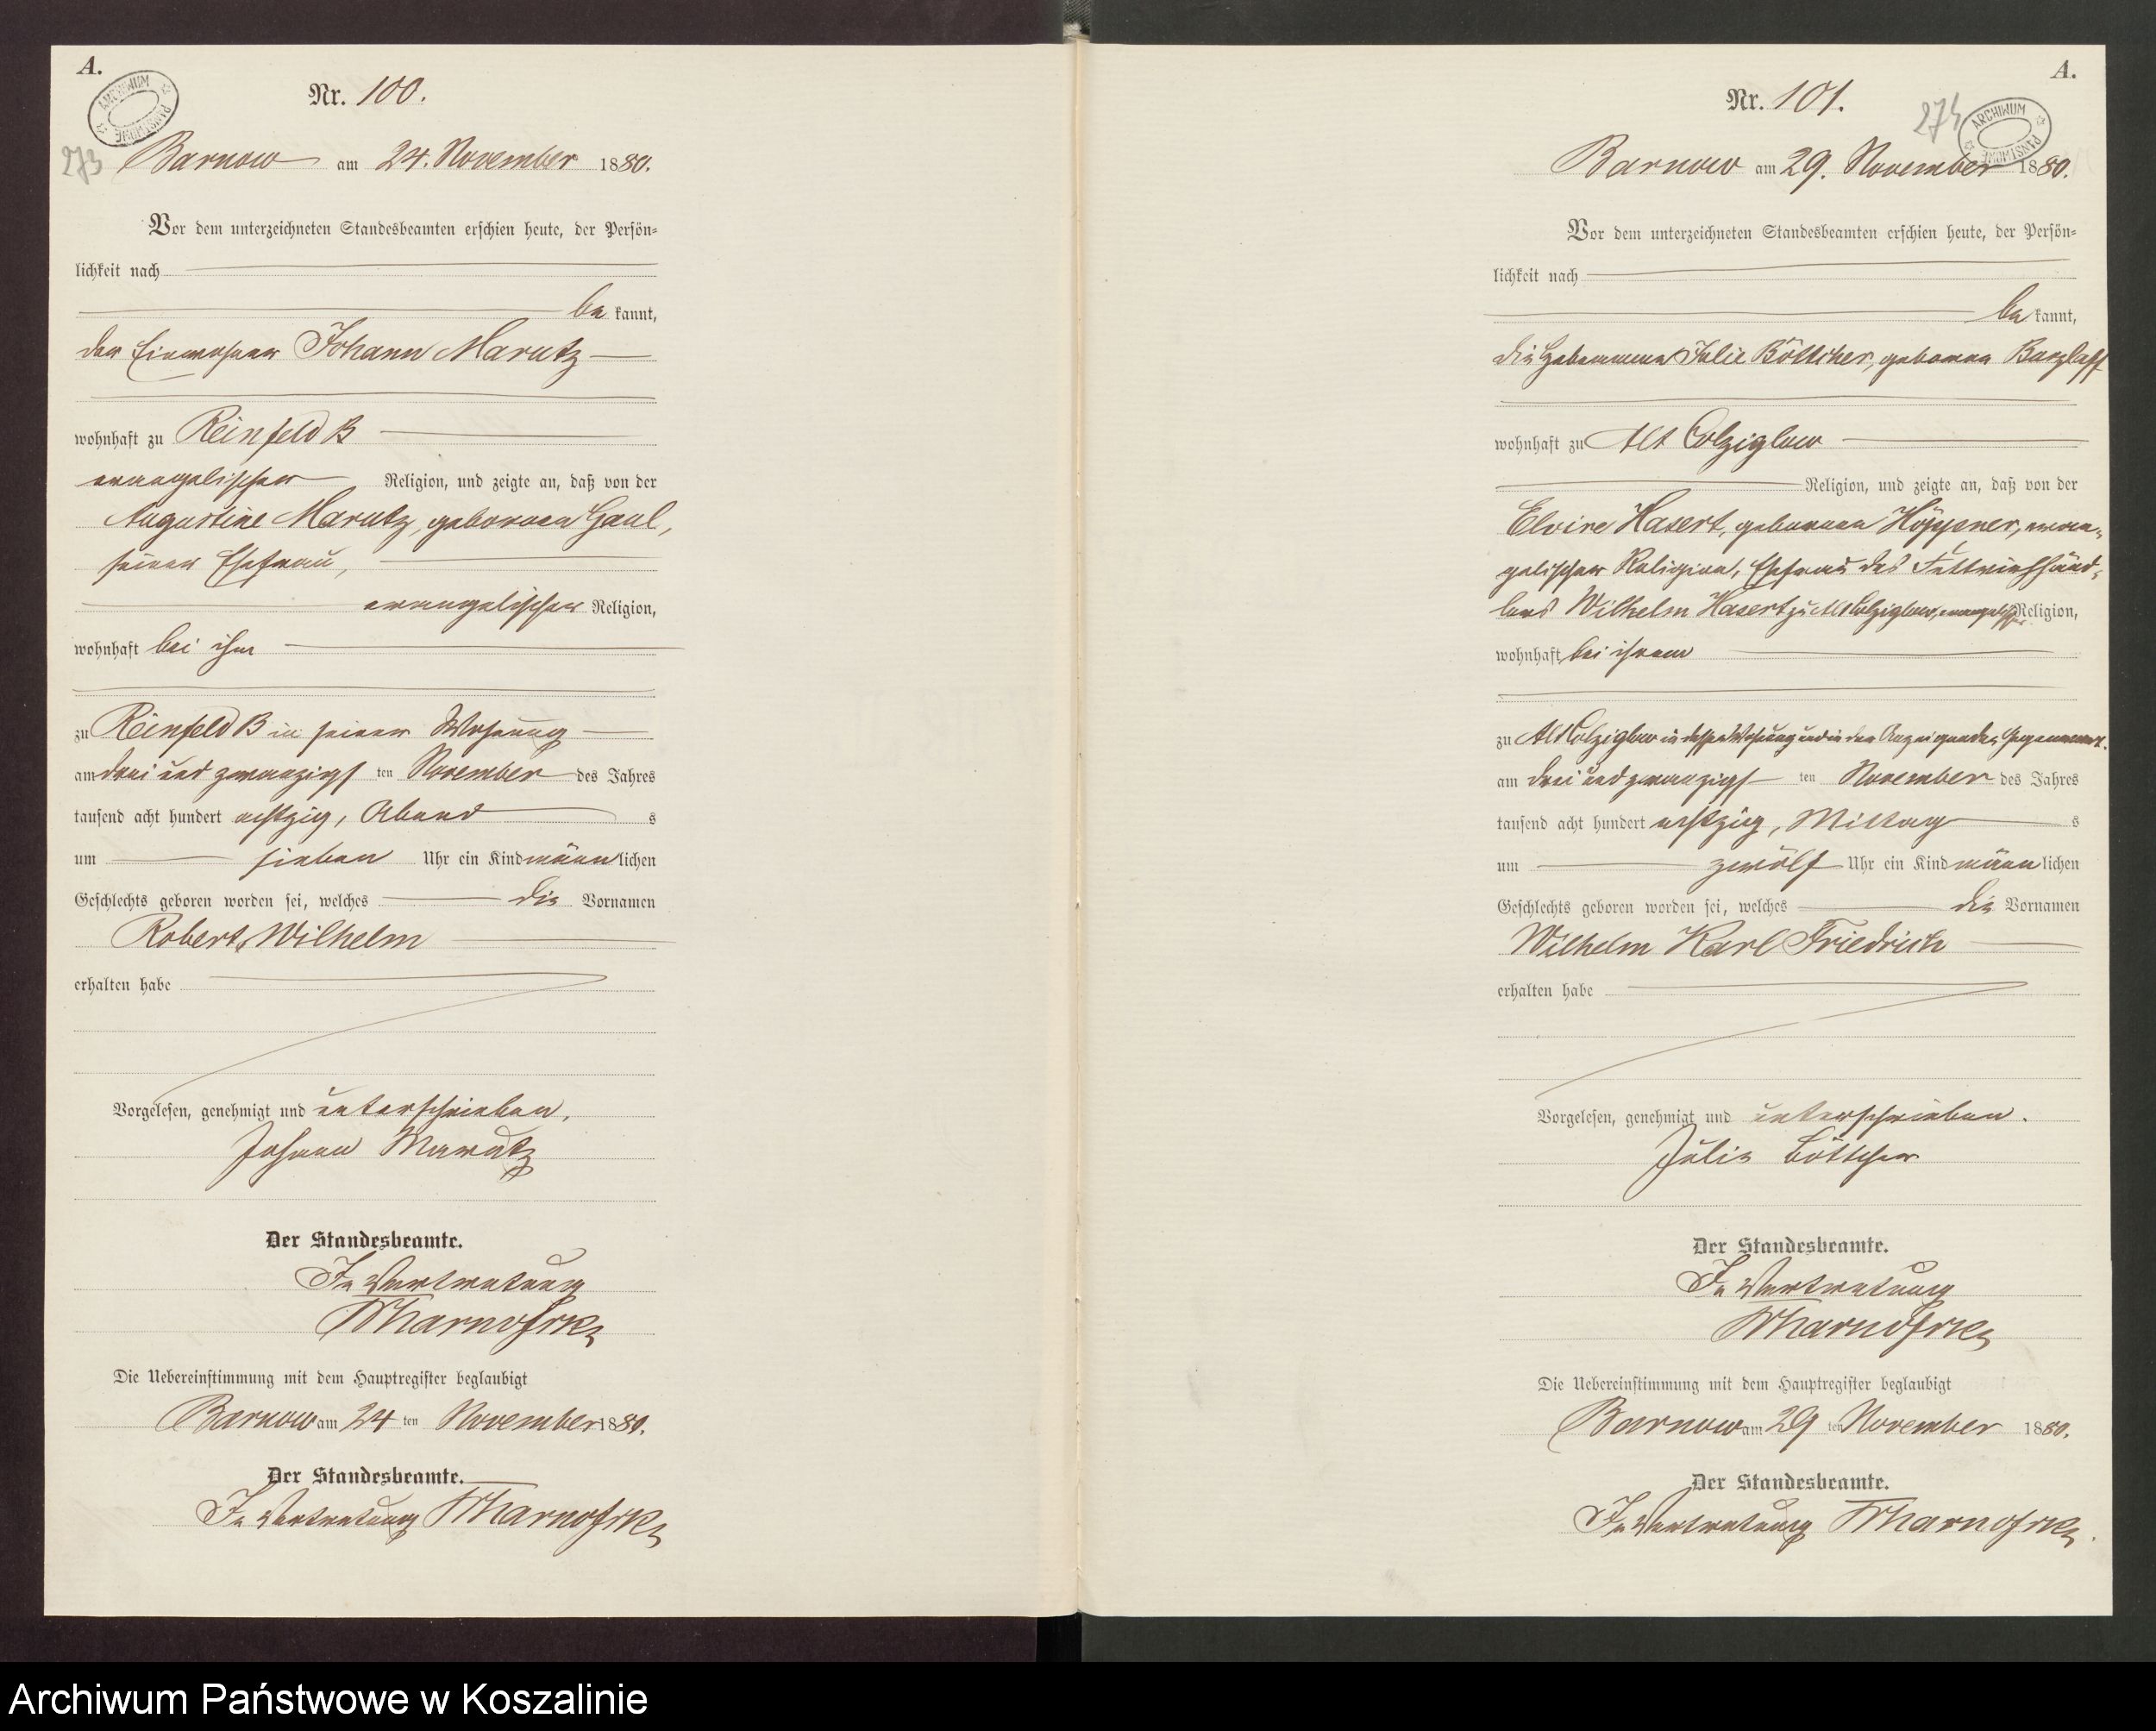 A.
ARCHIWUM PAŃSTWOWE
Nr. 100.
273
Barnow am 24. November 1880.
Vor dem unterzeichneten Standesbeamten erschien heute, der Persön-
lichkeit nach
be kannt,
der Einwohner Johann Marutz
wohnhaft zu Reinfeld B
evangelischer Religion, und zeigte an, daß von der
Augustine Marutz, geborenen Gaul,
seiner Ehefrau,
evangelischer Religion,
wohnhaft bei ihm
zu Reinfeld B in seiner Wohnung
am drei und zwanzigs ten November des Jahres
tausend acht hundert achtzig, Abend s
um sieben Uhr ein Kind männlichen
Geschlechts geboren worden sei, welches die Vornamen
Robert, Wilhelm
erhalten habe
Vorgelesen, genehmigt und unterschrieben.
Johann Marutz
Der Standesbeamte.
In Vertretung
Die Uebereinstimmung mit dem Hauptregister beglaubigt
Barnow am 24 ten November 1880.
Der Standesbeamte.
In Vertretung
A.
ARCHIWUM PAŃSTWOWE
Nr. 101.
274
Barnow am 29. November 1880.
Vor dem unterzeichneten Standesbeamten erschien heute, der Persön-
lichkeit nach
be kannt,
die Hebamme Julie Böttcher, geborene Barzlaff
wohnhaft zu Alt Colziglow
Religion, und zeigte an, daß von der
Elvire Hasert, geborenen Höppner, evan-
gelischer Religion, Ehefrau des Fettviehhänd-
lers Wilhelm Hasert zu Alt Colziglow, evangelischer Religion,
wohnhaft bei ihrem
zu Alt Colziglow in dessen Wohnung und in der Anzeigenden Gegenwart.
am drei und zwanzigs ten November des Jahres
tausend acht hundert achtzig, Mittag s
um zwölf Uhr ein Kind männlichen
Geschlechts geboren worden sei, welches die Vornamen
Wilhelm Karl Friedrich
erhalten habe
Vorgelesen, genehmigt und unterschrieben.
Julie Böttcher
Der Standesbeamte.
In Vertretung
Die Uebereinstimmung mit dem Hauptregister beglaubigt
Barnow am 29 ten November 1880.
Der Standesbeamte.
In Vertretung
Archiwum Państwowe w Koszalinie